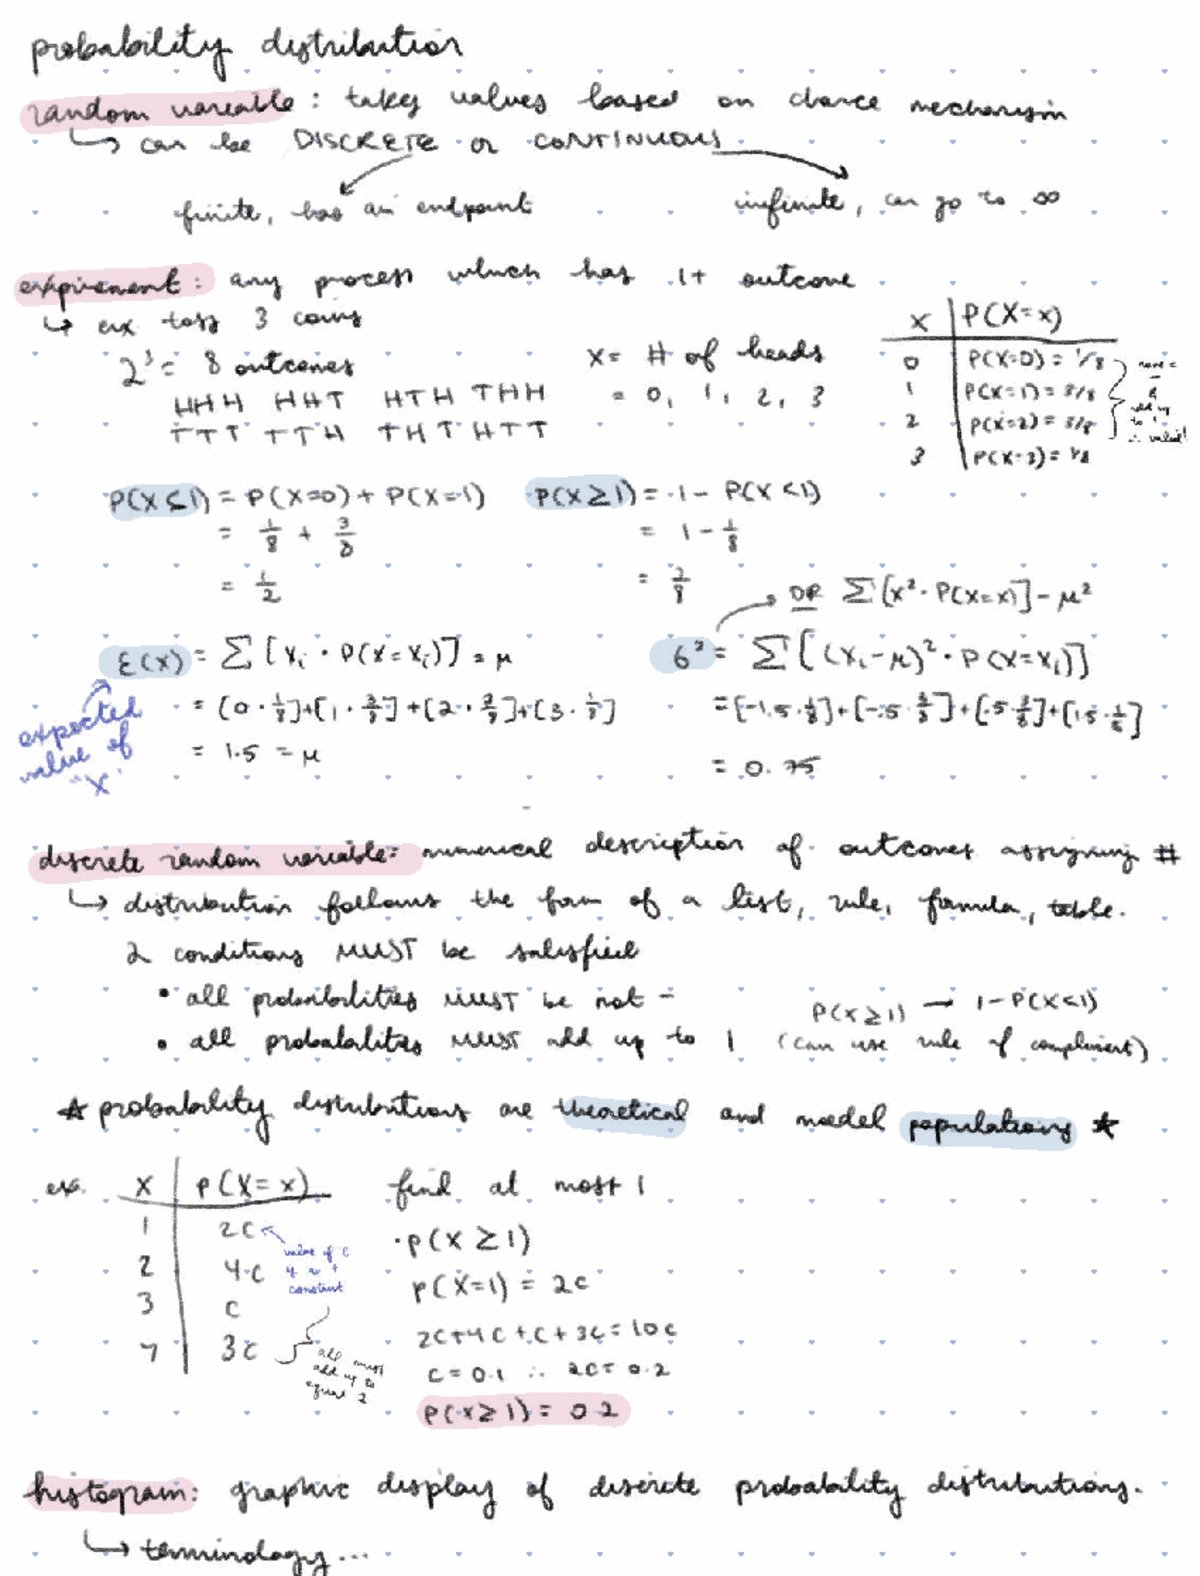 probability distribution
random variable: takes values based on chance mechanism
↳ can be DISCRETE or CONTINUOUS
finite, has an endpoint
infinite, can go to ∞
expirement: any process which has 1+ outcome
↳ ex toss 3 coins
2³ = 8 outcomes
HHH HHT HTH THH
TTT TTH THT HTT
x = # of heads
= 0, 1, 2, 3
x | P(X=x)
0 | P(X=0) = 1/8
1 | P(X=1) = 3/8
2 | P(X=2) = 3/8
3 | P(X=3) = 1/8
add up
to 1
∴ valid!
P(X≤1) = P(X=0) + P(X=1)
= 1/8 + 3/8
= 1/2
P(X≥1) = 1 - P(X<1)
= 1 - 1/8
= 7/8
OR Σ[x² · P(X=x)] - μ²
E(X) = Σ [xᵢ · P(X=xᵢ)] = μ
= [0 · 1/8] + [1 · 3/8] + [2 · 3/8] + [3 · 1/8]
= 1.5 = μ
expected
value of
"X"
6² = Σ[(xᵢ-μ)² · P(X=xᵢ)]
= [-1.5 · 1/8] + [-.5 · 3/8] + [.5 · 3/8] + [1.5 · 1/8]
= 0.75
discrete random variable: numerical description of outcomes assigning #
↳ distribution follows the form of a list, rule, formula, table.
2 conditions MUST be satisfied
• all probabilities MUST be not -
• all probabilities MUST add up to 1
P(X≥1) → 1-P(X<1)
(can use rule of compliment)
★ probability distributions are theoretical and model populations ★
ex. x | P(X=x)
1 | 2c
2 | 4c
3 | c
4 | 3c
value of c
constant
all must
add up to
equal
find at most 1
·P(X≥1)
P(X=1) = 2c
2c+4c+c+3c=10c
c=0.1 ∴ 2c=0.2
P(X≥1) = 0.2
histogram: graphic display of discrete probability distributions.
↳ terminology...